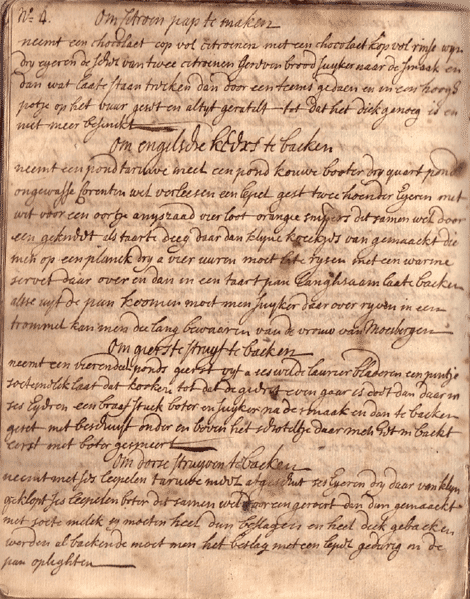 No 4. Om sitroen pap te maken
neemt een chocolaet cop vol citroenen met een chocolaet kop vol rinse wijn
dry eyeren de schel van twee citroenen brood suyker naar de smaak en
dan wat laate staan trecken dan door een teems gedaen en in een hoogh
potje op het vuur geset en altyt geroert tot dat het dick genoeg is en
niet meer
Om engelsche te backen
neemt een pond taruwe meel een pond kouwe booter dry quart pond
ongewasse corenten wel verleesen een lepel gest twee hoender Eyeren met
wit voor een oortje anyszaad vier loot orange snipers dit samen wel door
een gekneet als taerte deeg daar dan klyne koeckjes van gemaackt die
men op een planck dry a vier uuren moet late rysen met een warme
servet daar over en dan in een taart pan langhsaam laate backen
alsse uyt de pan koomen moet men suyker daar over ryven in een
trommel kan men die lang bewaaren van de vrouw van Moerbergen
Om gierste struyf te backen
neemt een vierendeel ponds geerst vyf a ses wilde laurier bladeren een pintje
soetemelck laat dat kooken tot dat de geerst even gaar is doet dan daar in
ses Eyeren een braaf stuck boter en suyker na de smaak en dan te backen
geset met onder en boven het schoteltje daar men het in backt
eerst met boter gesmeert
Om dorse struyven te backen
neemt met ses leepelen taruwe meel ses Eyeren dry daar van klyn
geklopt ses leepelen bier dit samen wel door een geroert dan dun gemaackt
met soete melck sy moeten heel dun beslagen en heel dick gebacken
werden al backende moet men het beslag met een lepel gedurig in de
pan oplighten